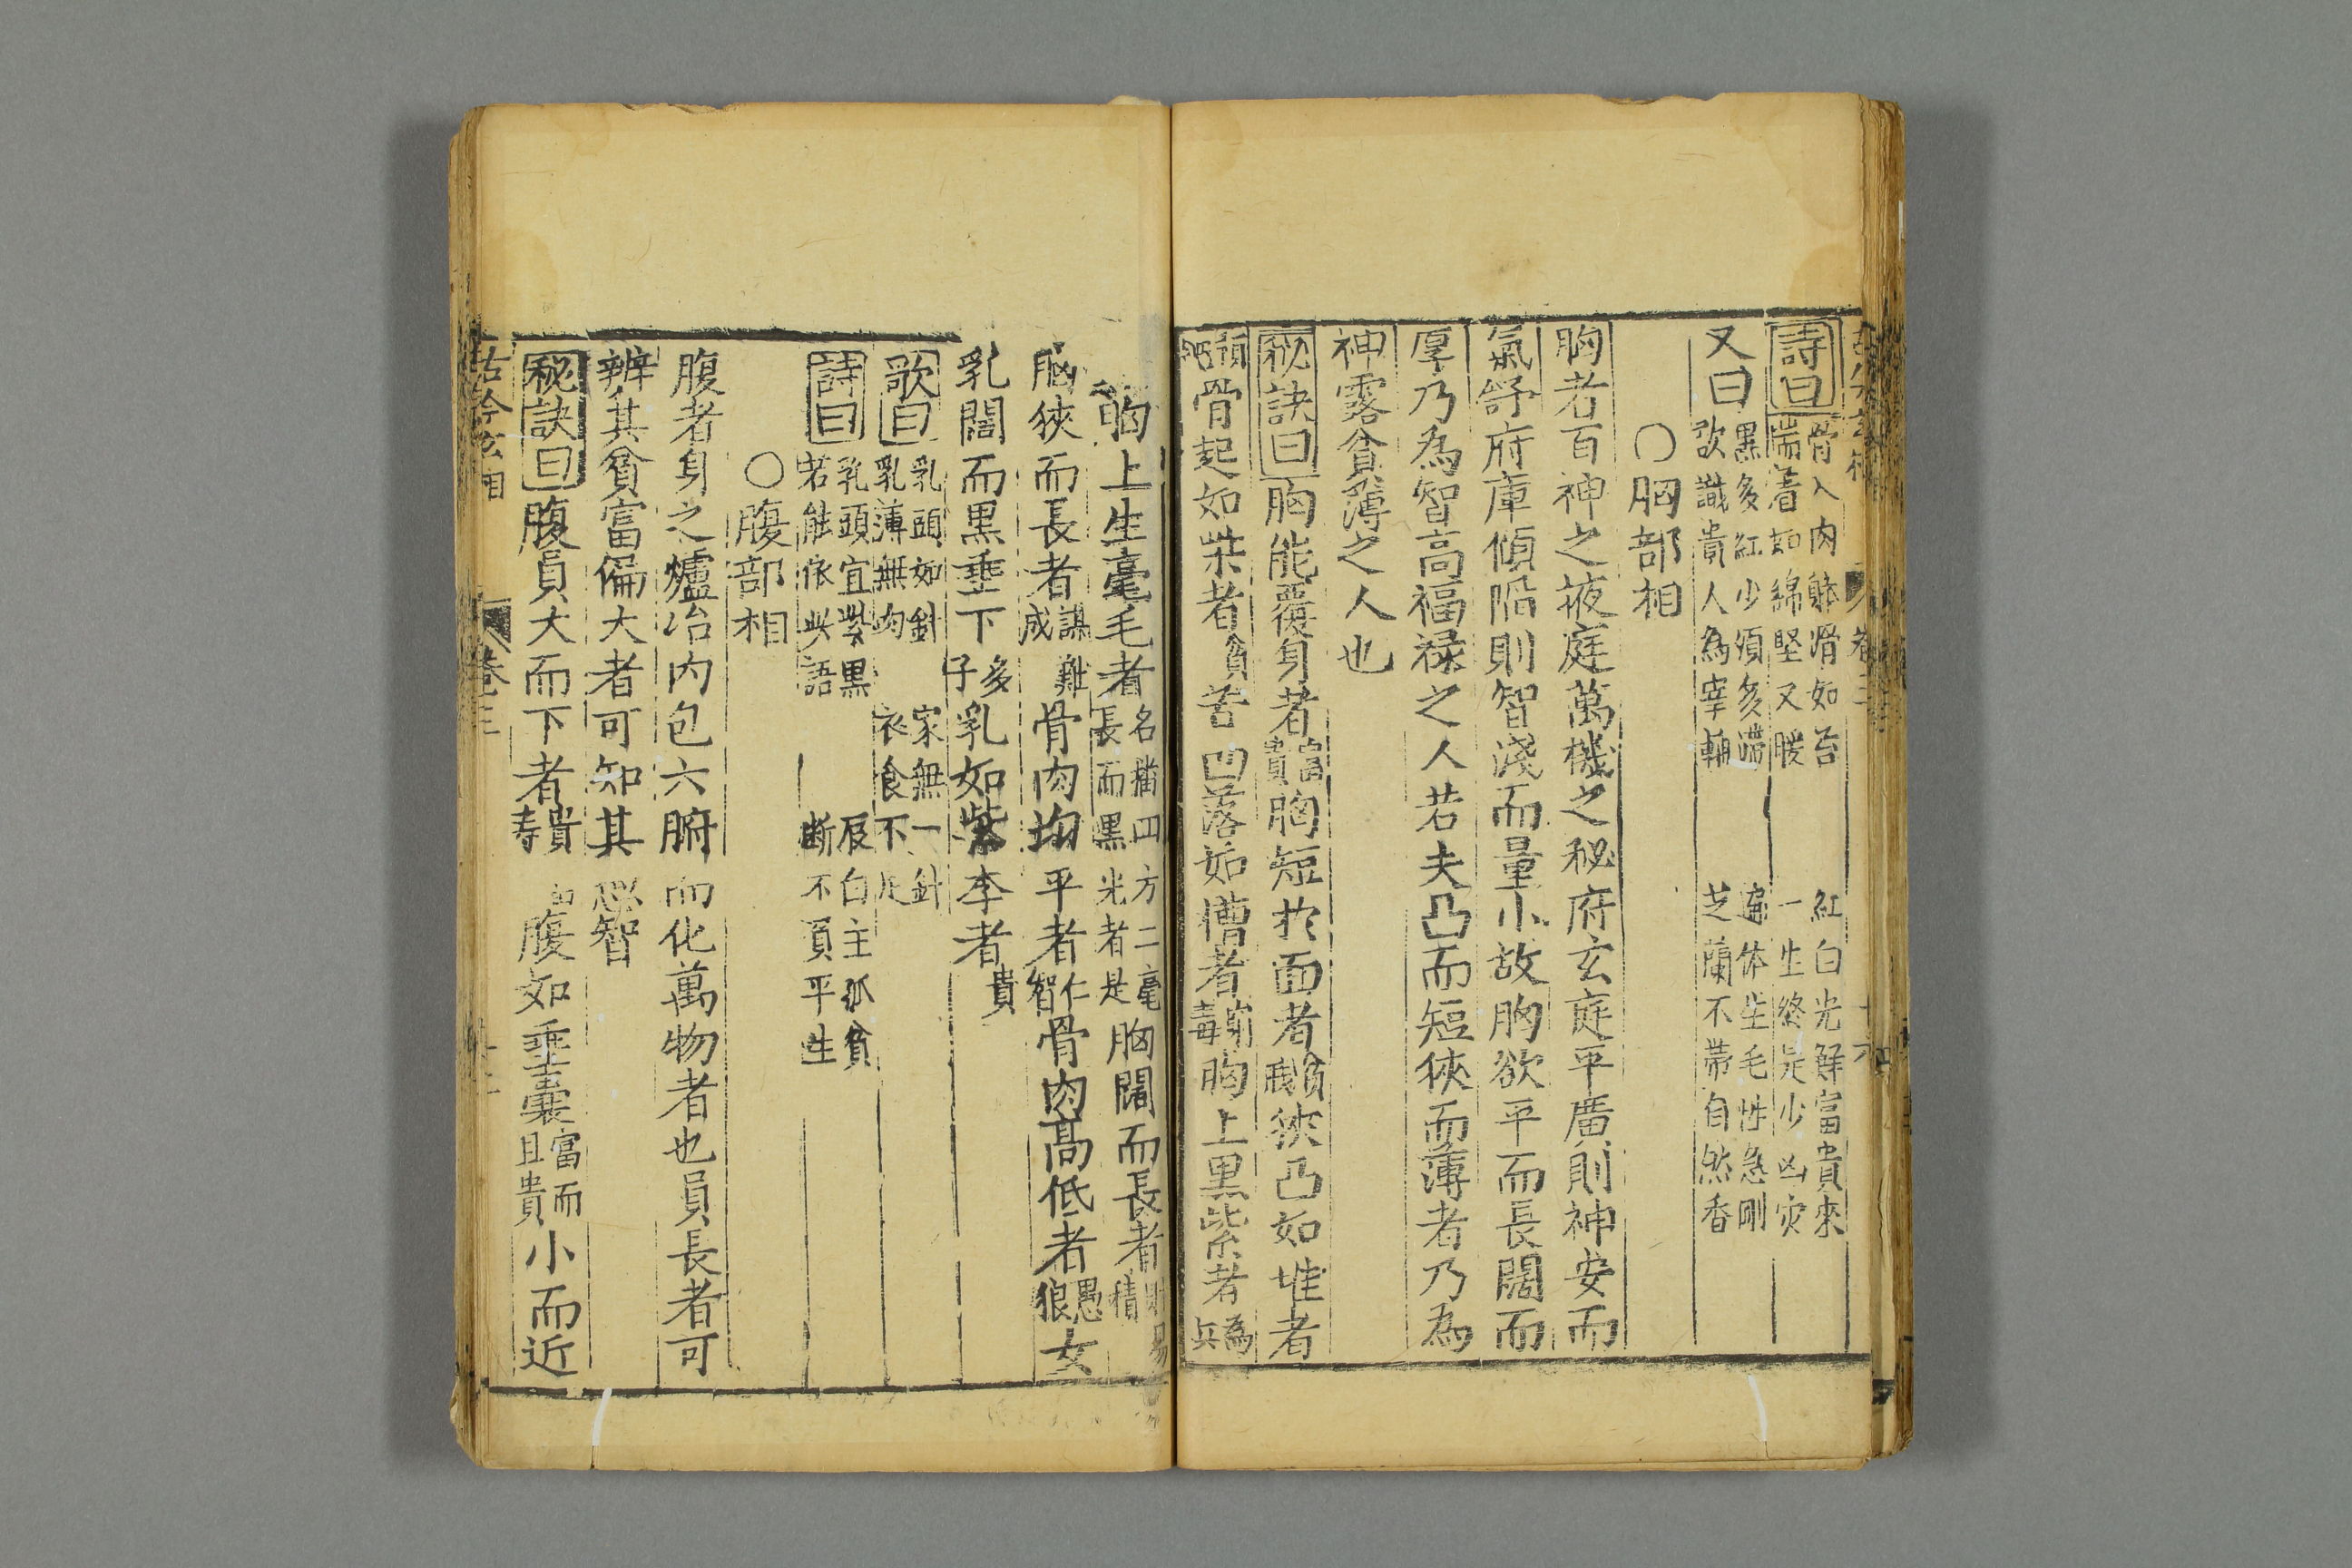 詩曰 骨入肉體滑如苔 紅白光鮮富貴來
揣着如綿堅又暖 一生終是少凶灾
又曰 黑多紅少須多滯 遍体生毛性急剛
欲識貴人為宰輔 芝蘭不帶自然香
〇胸部相
胸者百神之掖庭萬機之秘府玄庭平廣則神安而
氣舒府庫傾陷則智淺而量小故胸欲平而長闊而
厚乃為智高福祿之人若夫凸而短狹而薄者乃為
神露貧薄之人也
秘訣曰胸能覆身者富貴胸短於面者貧賤狹凸如堆者
頑骨起如柴者貧苦凹落如槽者毒胸上黑紫者為兵
胸上生毫毛者名播四方二毫長而黑光者是胸闊而長者易積
胸狹而長者謀難成骨肉均平者仁智骨肉高低者愚狼女
乳闊而黑垂下多子乳如紫李者貴
歌曰 乳頭如針 家無一針
乳薄無肉 衣食不足
詩曰 乳頭宜紫黑 白主孤貧
若能依此語 断不負平生
〇腹部相
腹者身之爐冶內包六腑而化萬物者也員長者可
辨其貧富偏大者可知其愚智
秘訣曰腹員大而下者貴寿腹如垂囊富而且貴小而近
古今玄相 卷三